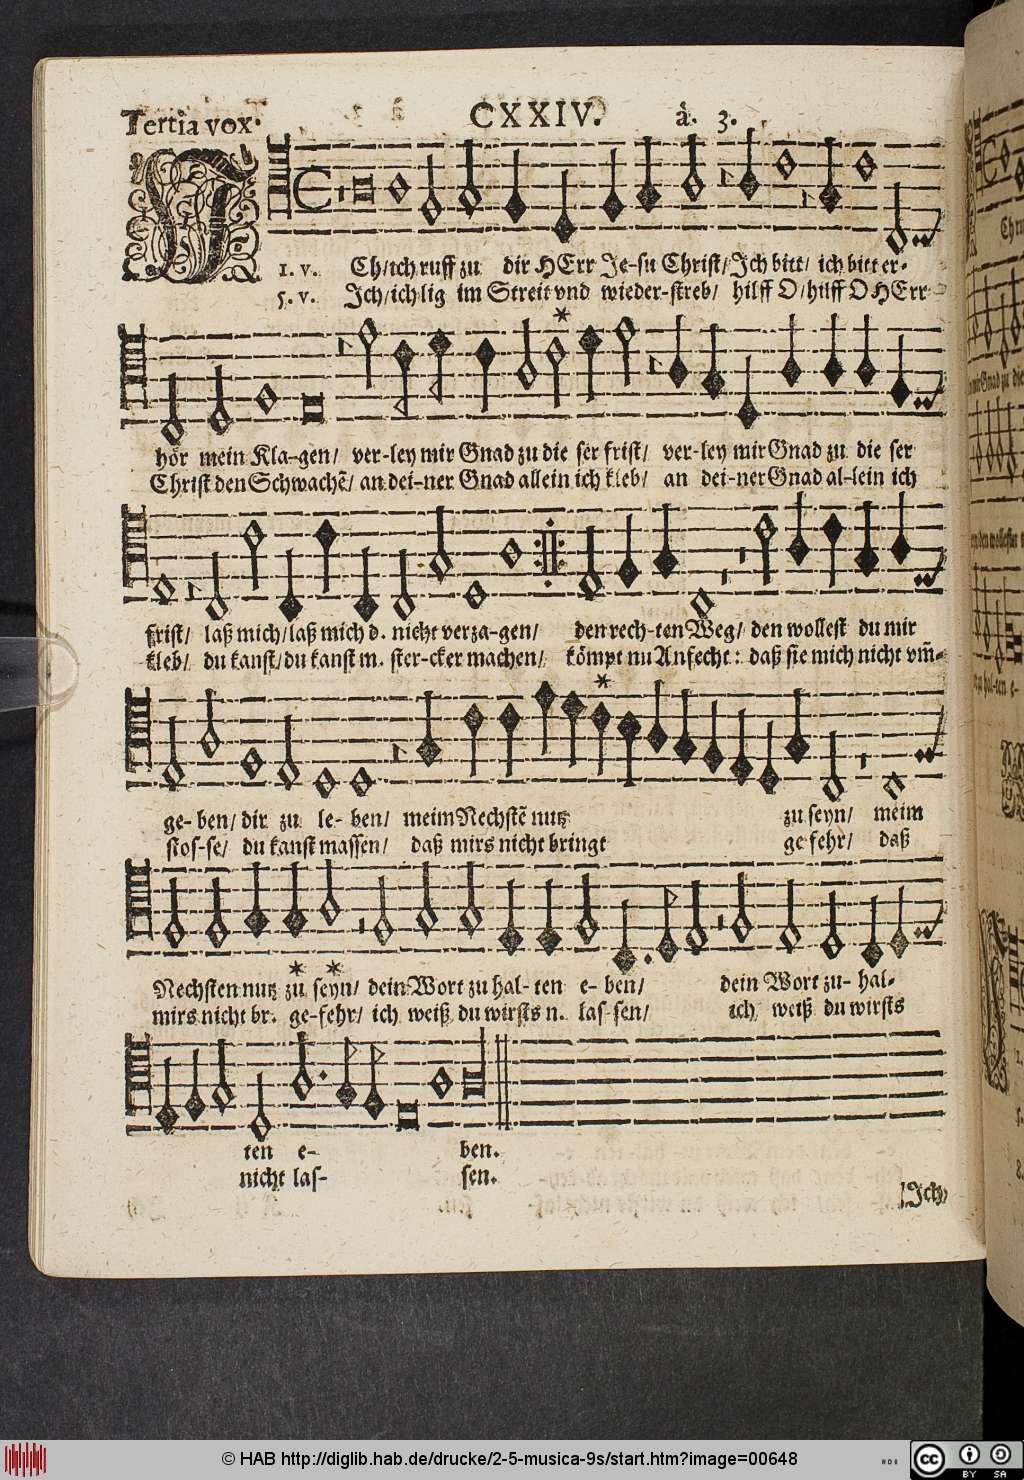 Tertia vox. CXXIV. à. 3.
1. v. ICh/ich ruff zu dir HErr Je-su Christ/Ich bitt/ ich bitt er-
5. v. Ich/ich lig im Streit vnd wieder-streb/ hilff O/hilff O HErr
hör mein Kla-gen/ ver-ley mir Gnad zu die ser frist/ ver-ley mir Gnad zu die ser
Christ den Schwachẽ/ an dei-ner Gnad allein ich kleb/ an dei-ner Gnad al-lein ich
frist/ laß mich/laß mich d. nicht verza-gen/ den rech-ten Weg/ den wollest du mir
kleb/ du kanst/du kanst m. ster-cker machen/ kömpt nu Anfecht: daß sie mich nicht vm̃-
ge-ben/ dir zu le-ben/ meim Nechstẽ nutz zu seyn/ meim
stos-se/ du kanst massen/ daß mirs nicht bringt ge fehr/ daß
Nechsten nutz zu seyn/ dein Wort zu hal-ten e-ben/ dein Wort zu-hal-
mirs nicht br. ge-fehr/ ich weiß du wirsts n. las-sen/ ich weiß du wirsts
ten e- ben.
nicht las- sen.
/Ich/
© HAB http://diglib.hab.de/drucke/2-5-musica-9s/start.htm?image=00648
cc BY SA